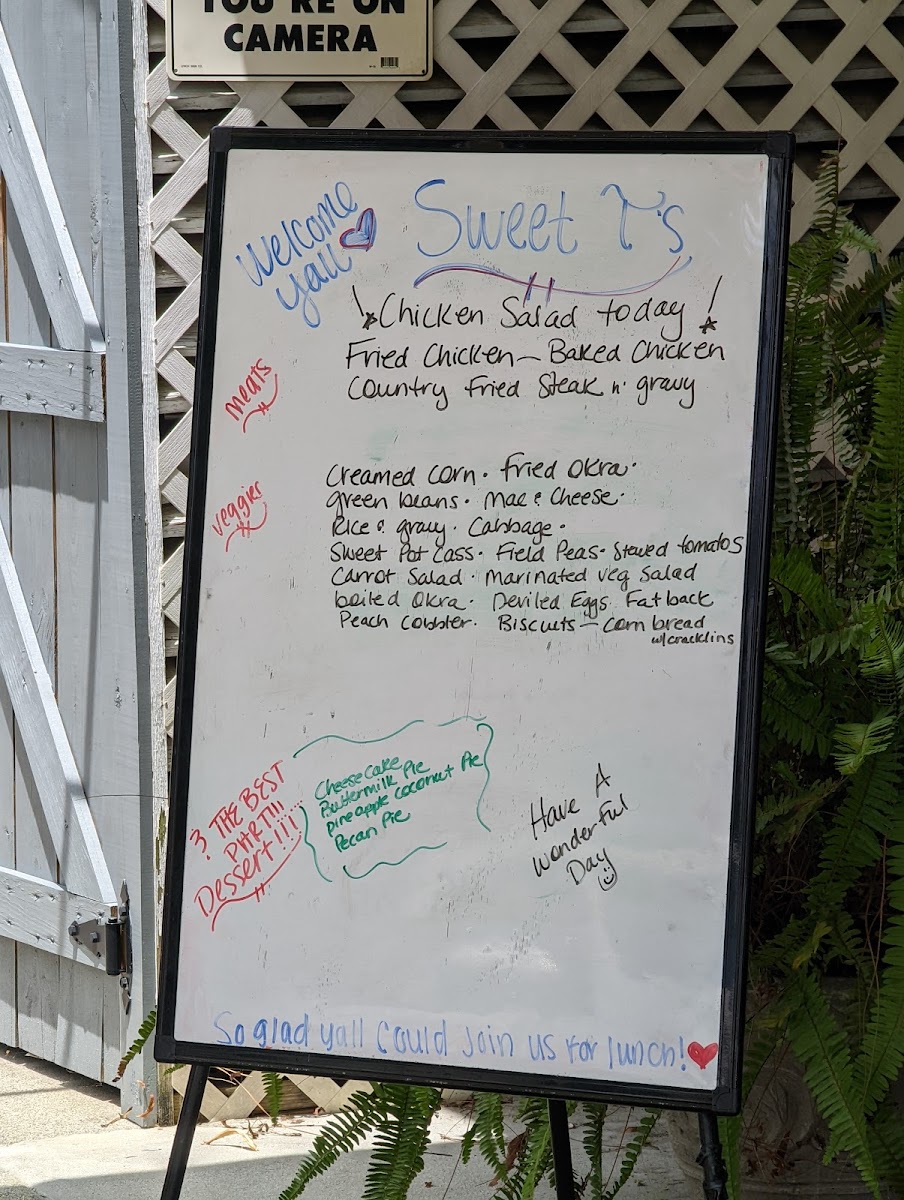 YOU'RE ON
CAMERA
Welcome
yall
Sweet T's
! Chicken Salad today !
meats
Fried Chicken - Baked Chicken
Country Fried Steak n' gravy
veggies
Creamed corn · Fried Okra ·
green beans · Mac & Cheese ·
Rice & gravy · Cabbage ·
Sweet Pot Cass · Field Peas · Stewed tomatos
Carrot Salad · Marinated veg Salad
boiled Okra · Deviled Eggs · Fatback
Peach Cobbler · Biscuits - Corn bread
w/cracklins
THE BEST
PART!!!
Dessert!!!
CheeseCake
Buttermilk Pie
pineapple coconut Pie
Pecan Pie
Have A
Wonderful
Day
So glad yall could Join us for lunch!